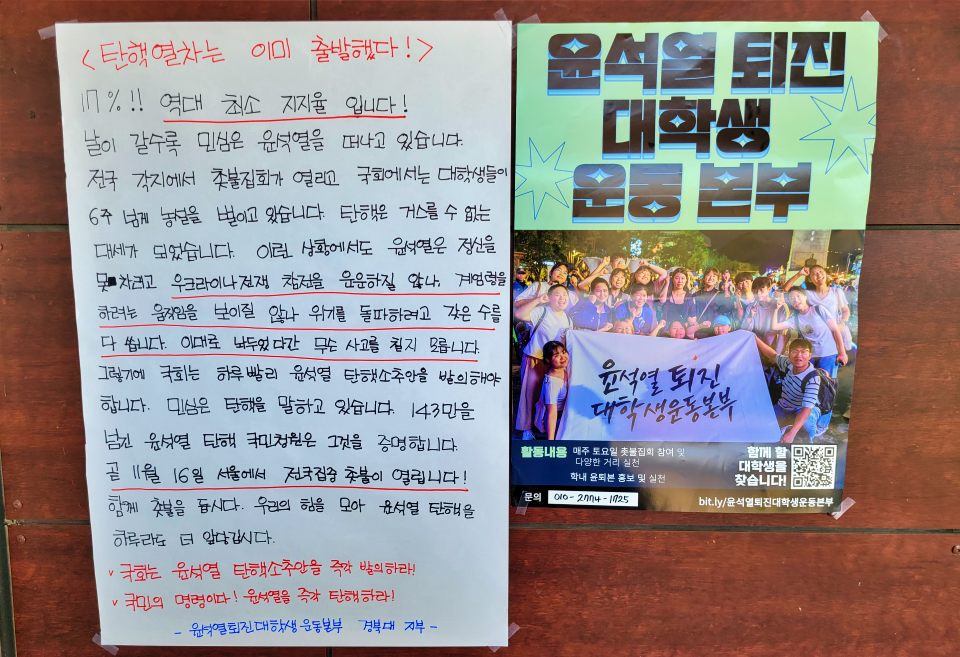 <탄핵열차는 이미 출발했다!>
17%!! 역대 최소 지지율 입니다!
날이 갈수록 민심은 윤석열을 떠나고 있습니다.
전국 각지에서 촛불집회가 열리고 국회에서는 대학생들이
6주 넘게 농성을 벌이고 있습니다. 탄핵은 거스를 수 없는
대세가 되었습니다. 이런 상황에서도 윤석열은 정신을
못 차리고 우크라이나 전쟁 참전을 운운하질 않나, 계엄령을
하려는 움직임을 보이질 않나 위기를 돌파하려고 갖은 수를
다 씁니다. 이대로 놔두었다간 무슨 사고를 칠지 모릅니다.
그렇기에 국회는 하루빨리 윤석열 탄핵소추안을 발의해야
합니다. 민심은 탄핵을 말하고 있습니다. 143만을
넘긴 윤석열 탄핵 국민청원은 그것을 증명합니다.
곧 11월 16일 서울에서 전국집중 촛불이 열립니다!
함께 촛불을 듭시다. 우리의 힘을 모아 윤석열 탄핵을
하루라도 더 앞당깁시다.
v 국회는 윤석열 탄핵소추안을 즉각 발의하라!
v 국민의 명령이다! 윤석열을 즉각 탄핵하라!
- 윤석열퇴진대학생운동본부 경북대 지부 -
윤석열 퇴진
대학생
운동 본부
윤석열 퇴진
대학생운동본부
활동내용 매주 토요일 촛불집회 참여 및
다양한 거리 실천
학내 윤퇴본 홍보 및 실천
문의 010-2774-1725
함께 할
대학생을
찾습니다!
bit.ly/윤석열퇴진대학생운동본부